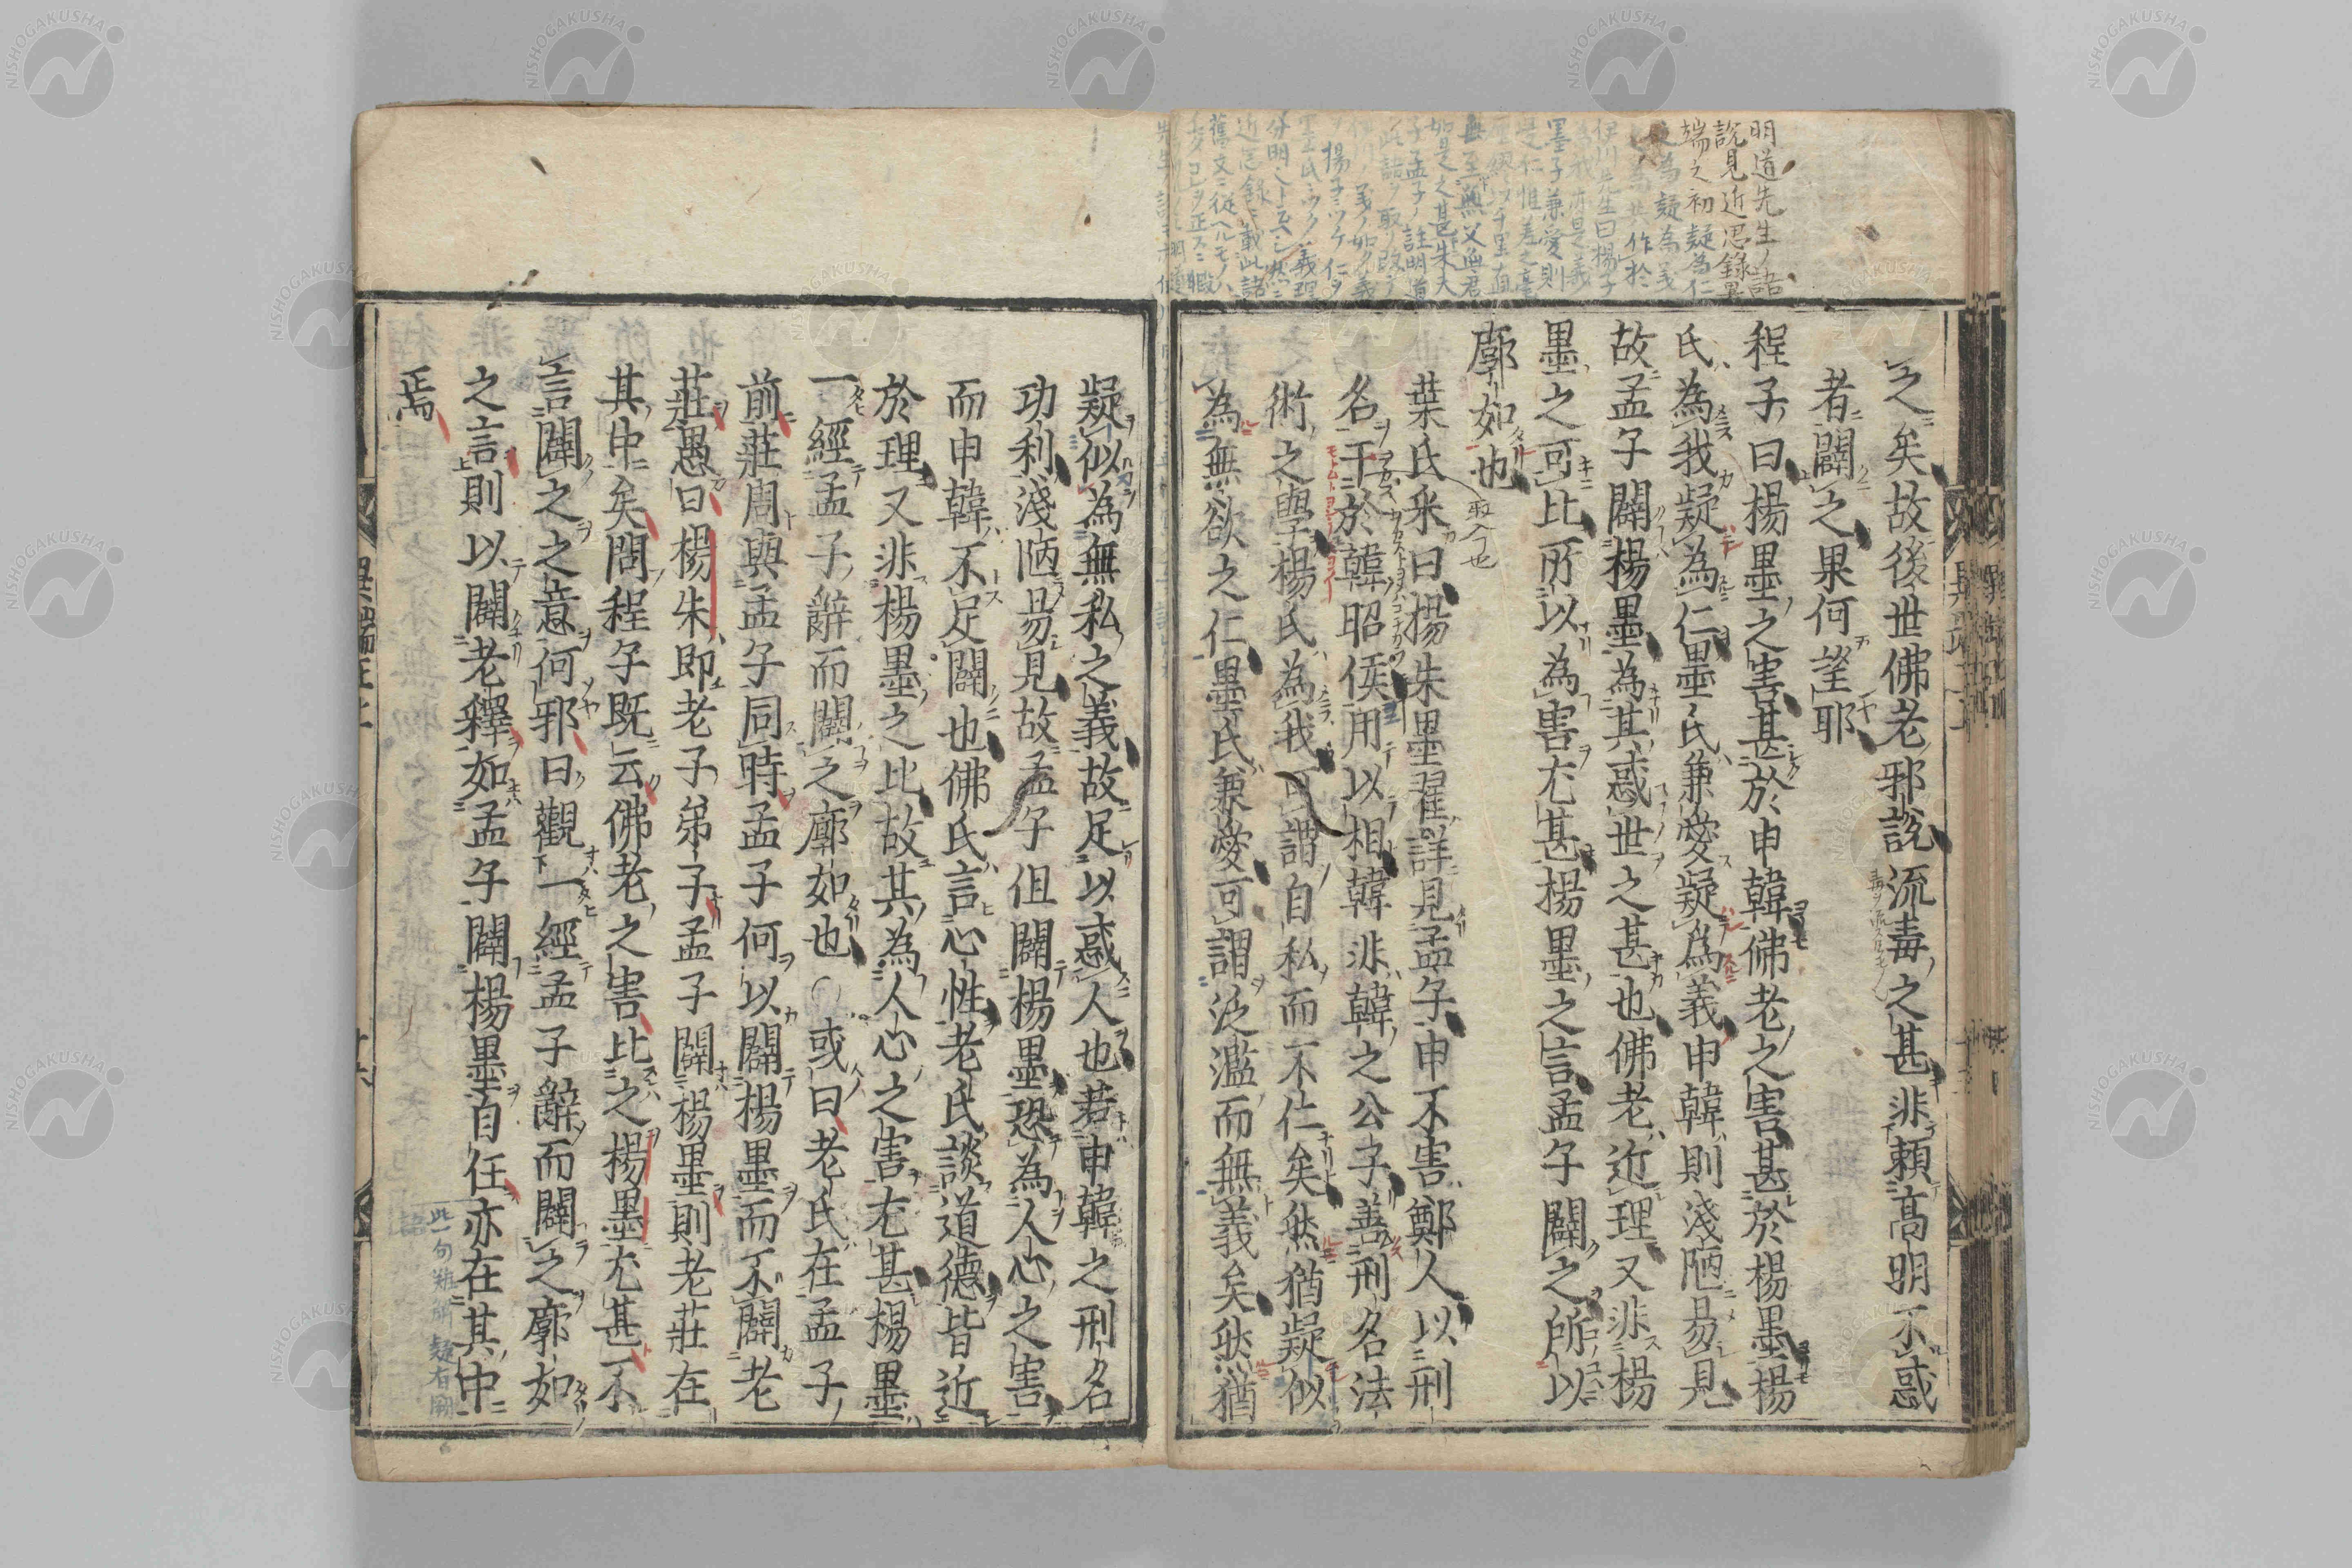 之矣故後世佛老邪說流毒之甚非頼高明不惑
者闢之果何望耶
程子曰楊墨之害甚於申韓佛老之害甚於楊墨楊
氏為我疑為仁墨氏兼愛疑為義申韓則淺陋易見
故孟子闢楊墨為其惑世之甚也佛老近理又非楊
墨之可比所以為害尤甚楊墨之言孟子闢之所以
廓如也
葉氏采曰楊朱墨翟詳見孟子申不害鄭人以刑
名干於韓昭侯用以相韓非韓之公子善刑名法
術之學楊氏為我可謂自私而不仁矣然猶疑似
為無欲之仁墨氏兼愛可謂泛濫而無義矣然猶
疑似為無私之義故足以惑人也若申韓之刑名
功利淺陋易見故孟子但闢楊墨恐為人心之害
而申韓不足闢也佛氏言心性老氏談道德皆近
於理又非楊墨之比故其為人心之害尤甚楊墨
一經孟子辭而闢之廓如也○或曰老氏在孟子
前莊周與孟子同時孟子何以闢楊墨而不闢老
莊愚曰楊朱即老子弟子孟子闢楊墨則老莊在
其中矣問程子既云佛老之害比之楊墨尤甚不
言闢之之意何邪曰觀一經孟子辭而闢之廓如
之言則以闢老釋如孟子闢楊墨自任亦在其中
焉
明道先生ノ語
說見近思錄異
端之初疑為仁
疑為義
伊川先生曰楊子
為我亦是義
墨子兼愛則
是仁惟差之毫
釐繆以千里直
至無父無君
如是之甚朱夫
子孟子ノ註明道
此語ヲ取リ改テ
NISHOGAKUSHA